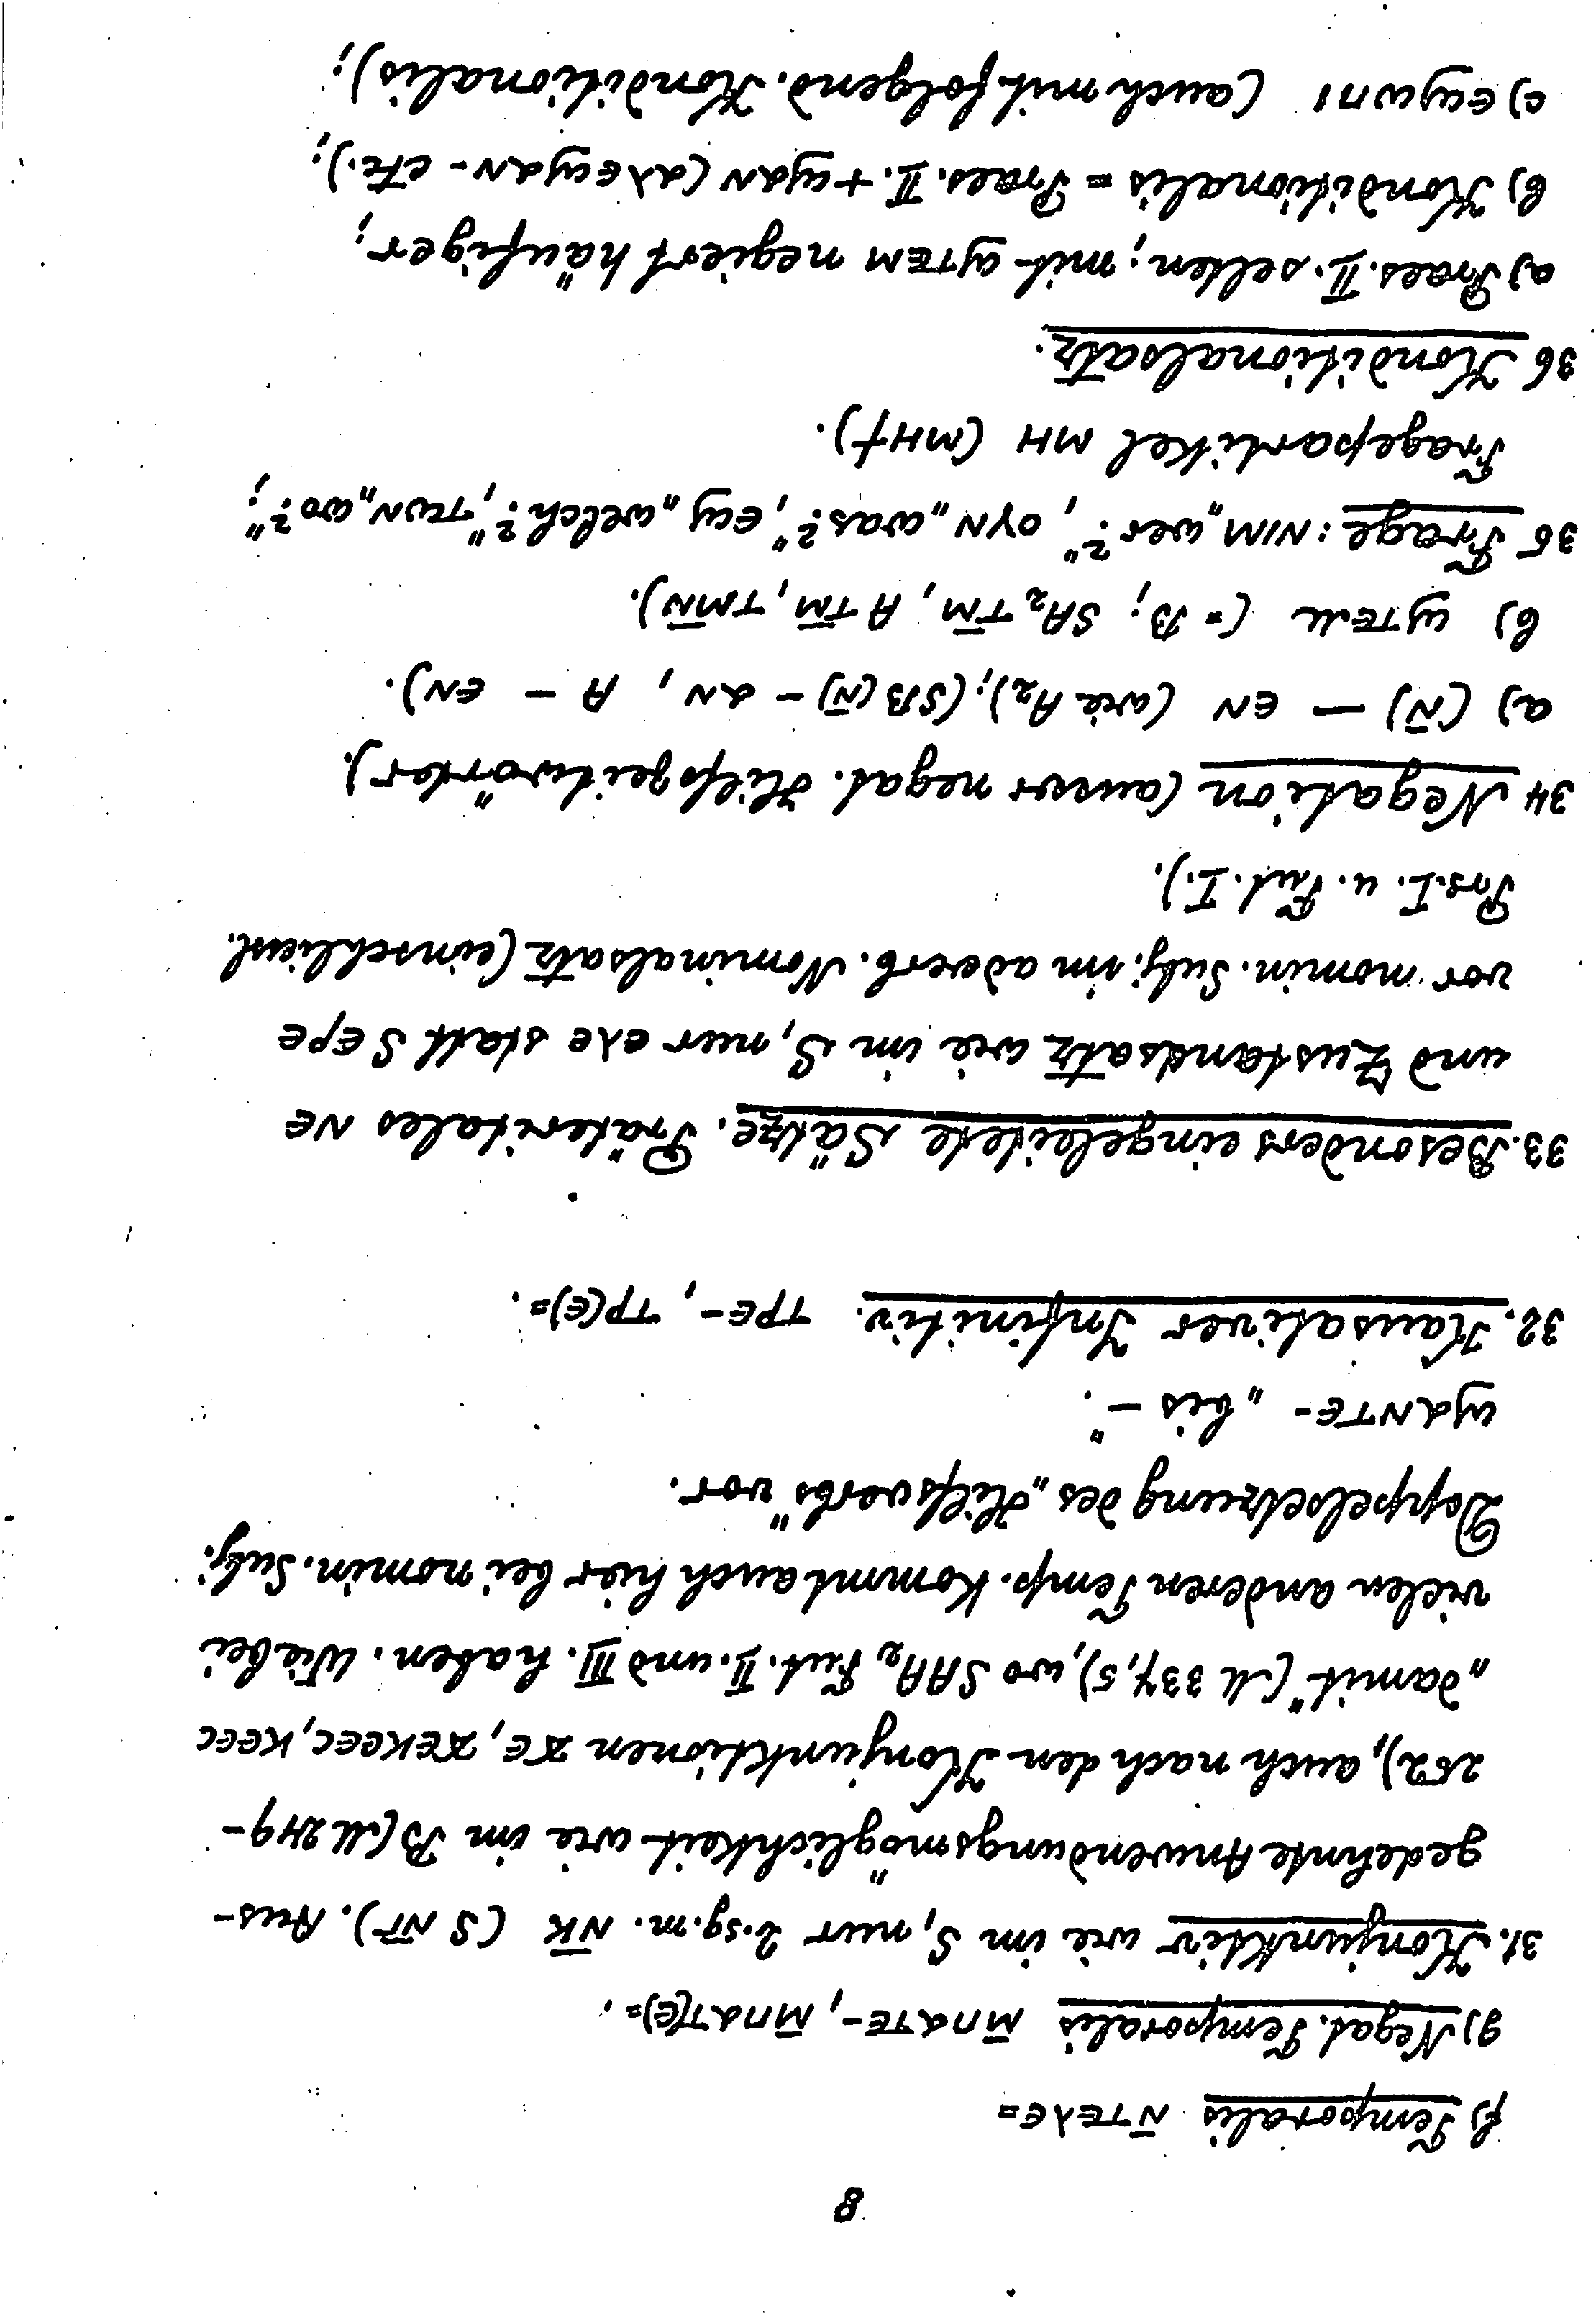 8
f) Temporalis ⲚⲦⲈⲖⲈ=
g) Negat. Temporalis Ⲙ̄ⲠⲀⲦⲈ-, Ⲙ̄ⲠⲀⲦ(Ⲉ)=.
31. Konjunktiv wie im S, nur 2.sg.m. Ⲛ̄Ⲕ (S Ⲛ̄Ⲅ). Aus-
gedehnte Anwendungsmöglichkeit wie im B (M 249-
252), auch nach den Konjunktionen ϪⲈ, ϪⲈⲔⲈⲈⲤ, ⲔⲈⲈⲤ
„damit" (M 337,5), wo SAA₂ Fut. II. und III. haben. Wie bei
vielen anderen Temp. kommt auch hier bei nomin. Subj.
Doppelsetzung des „Hilfsverbs" vor.
ϢⲀⲚⲦⲈ- „bis -".
32. Kausativer Infinitiv. ⲦⲢⲈ-, ⲦⲢ(Ⲉ)=.
33. Besonders eingeleitete Sätze. Präteritales ⲚⲈ
und Zustandsatz wie im S, nur ⲈⲖⲈ statt S ⲈⲢⲈ
vor nomin. Subj. im adverb. Nominalsatz (einschliessl.
Prs.I. u. Fut. I.).
34 Negation (ausser negat. Hilfszeitwörter).
a) (Ⲛ̄) — ⲈⲚ (wie A₂); (SB (Ⲛ̄) - ⲀⲚ, A - ⲈⲚ).
b) ϢⲦⲈⲘ (= B; SA₂ ⲦⲘ̄, A ⲦⲘ̄, ⲦⲘⲚ̄).
35 Frage: ⲚⲒⲘ „wer?", ⲞⲨⲚ „was?", ⲈϢ „welch?", ⲦⲰⲚ „wo?";
Fragepartikel ⲘⲎ (ⲘⲎϮ).
36 Konditionalsatz.
a) Praes. II. selten; mit ϢⲦⲈⲘ negiert häufiger;
b) Konditionalis = Praes. II. + ϢⲀⲚ (ⲀⲖⲈϢⲀⲚ- etc.);
c) ⲈϢⲰⲠⲒ (auch mit folgend. Konditionalis);